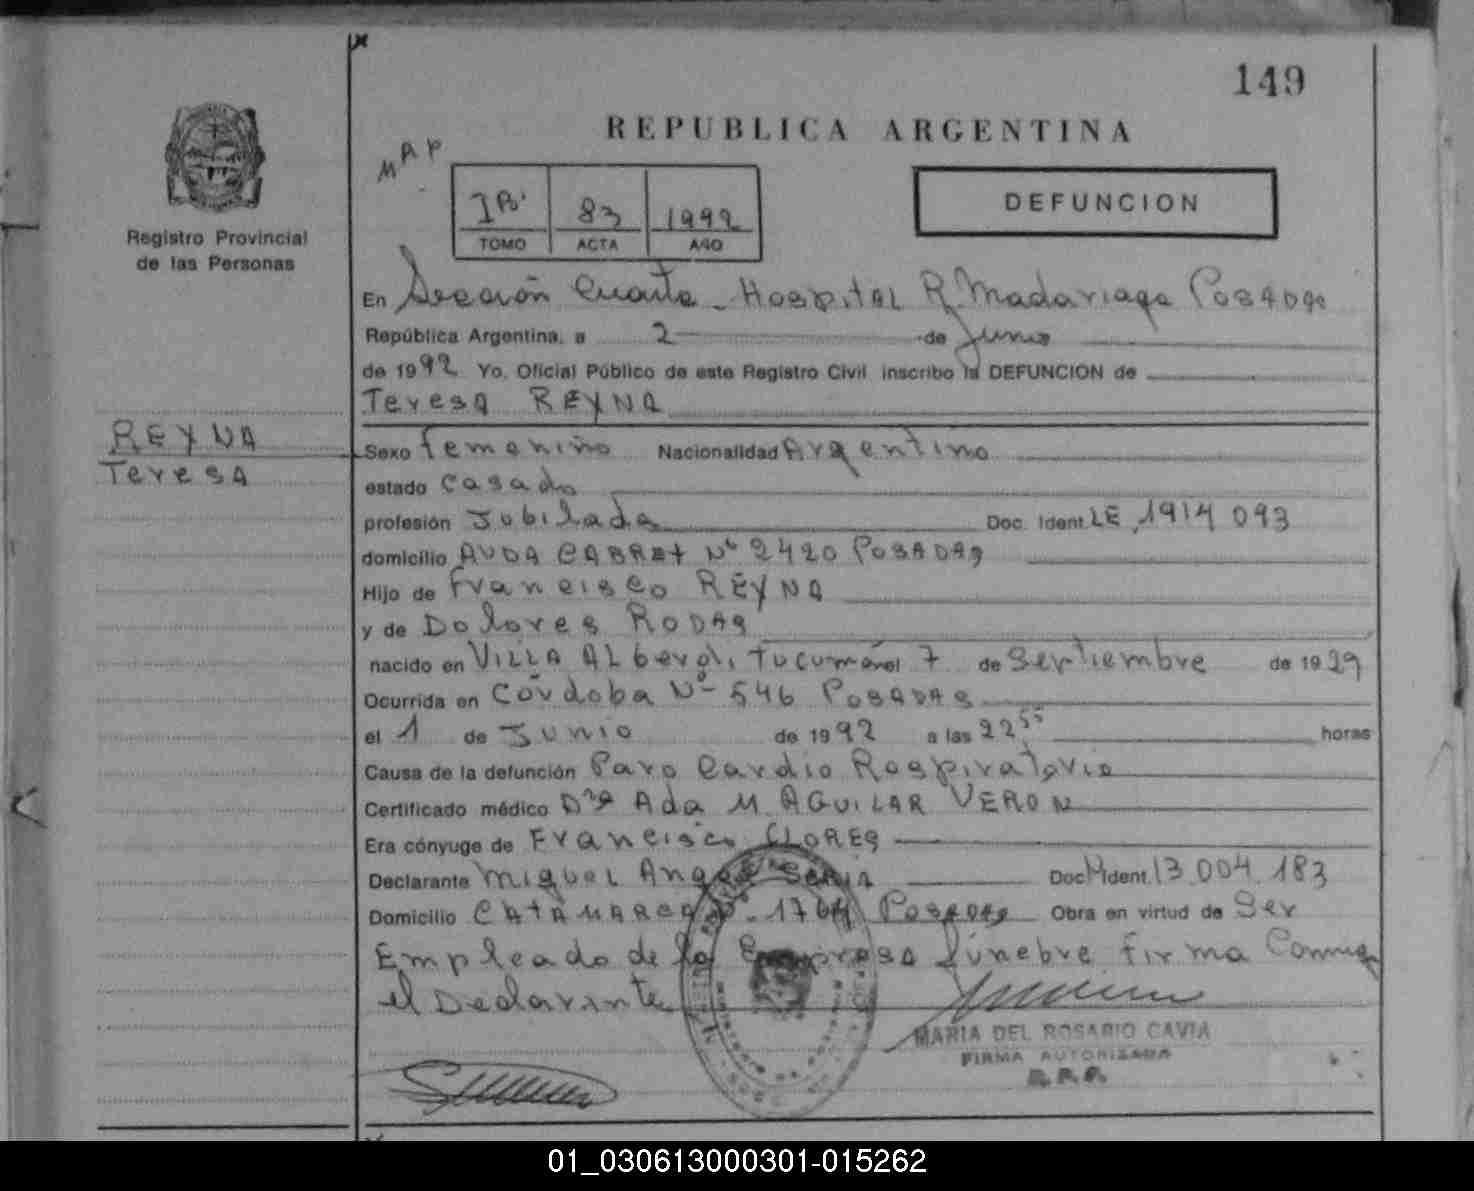 149
REPUBLICA ARGENTINA
MAP
DEFUNCION
1B. 83 1992
TOMO ACTA AÑO
Registro Provincial
de las Personas
En Sección Cuarta - Hospital R. Madariaga Posadas
República Argentina, a 2 de Junio
de 1992 Yo, Oficial Público de este Registro Civil inscribo la DEFUNCION de
Teresa REYNA
REYNA
Teresa
Sexo femenino Nacionalidad Argentino
estado casado
profesión Jubilada Doc. Ident. LE 1914 093
domicilio AVDA CABRET Nº 2420 POSADAS
Hijo de Francisco REYNA
y de Dolores RODAS
nacido en VILLA ALberdi, Tucumán el 7 de Septiembre de 1929
Ocurrida en Córdoba Nº 546 POSADAS
el 1 de Junio de 1992 a las 22 55 horas
Causa de la defunción Paro Cardio Respiratorio
Certificado médico Dra Ada M. AGUILAR VERON
Era cónyuge de Francisco FLORES
Declarante Miguel Angel Doc. Ident. 13.004.183
Domicilio CATAMARCA Nº 1764 Posadas Obra en virtud de Ser
Empleado de la Empresa fúnebre firma Conmigo
el Declarante
MARIA DEL ROSARIO CAVIA
FIRMA AUTORIZADA
R.P.P.
01_030613000301-015262